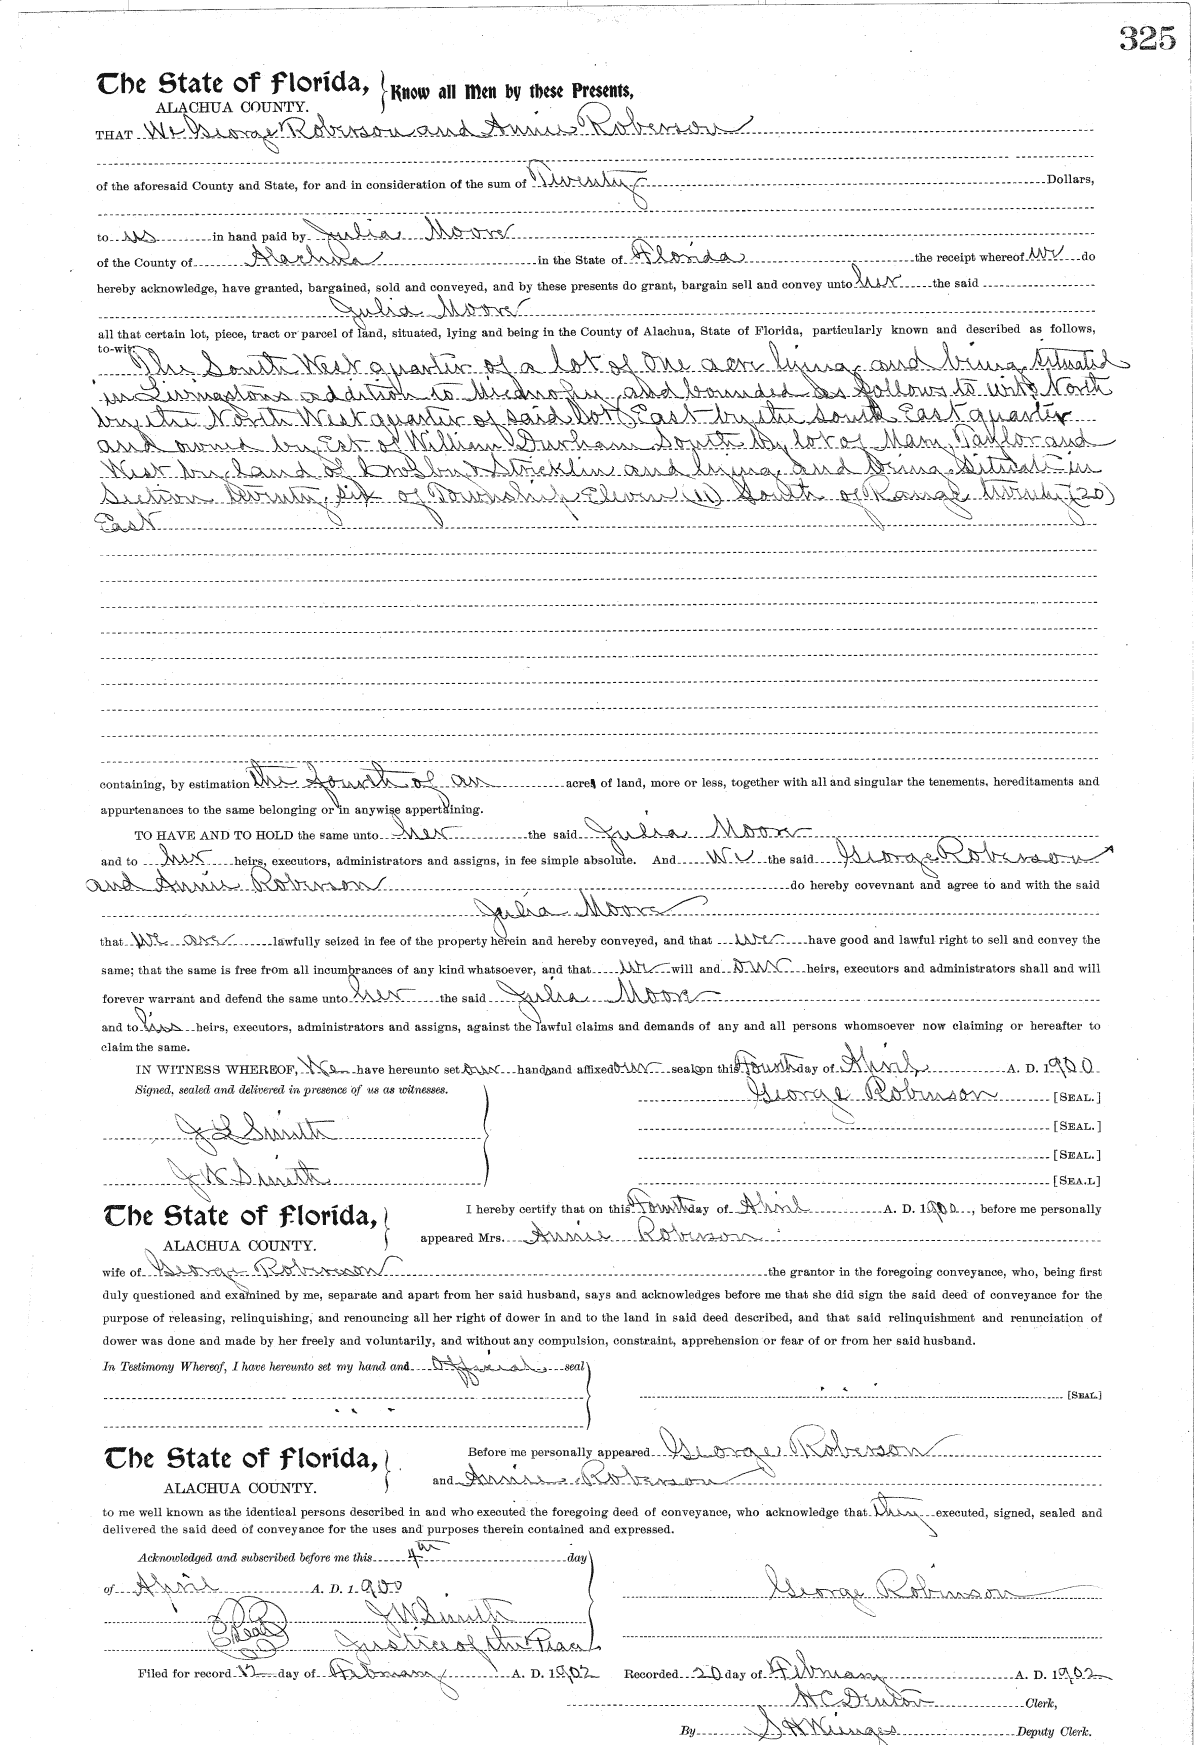 325
The State of Florida, Know all Men by these Presents,
ALACHUA COUNTY.
THAT We George Robinson and Annie Roberson
of the aforesaid County and State, for and in consideration of the sum of Twenty Dollars,
to us in hand paid by Julia Moore
of the County of Alachua in the State of Florida the receipt whereof we do
hereby acknowledge, have granted, bargained, sold and conveyed, and by these presents do grant, bargain sell and convey unto her the said
Julia Moore
all that certain lot, piece, tract or parcel of land, situated, lying and being in the County of Alachua, State of Florida, particularly known and described as follows,
to-wit:
The South West quarter of a lot of One acre lying and being situated
in Livingstons addition to Micanopy and bounded as follows to wit North
by the North West quarter of said lot East by the South East quarter
and owned by Est of William Durham South by lot of Mary Taylor and
West by land of & Stricklin and lying and being situate in
Section twenty six of Township Eleven (11) South of Range twenty (20)
East
containing, by estimation the fourth of an acre of land, more or less, together with all and singular the tenements, hereditaments and
appurtenances to the same belonging or in anywise appertaining.
TO HAVE AND TO HOLD the same unto her the said Julia Moore
and to her heirs, executors, administrators and assigns, in fee simple absolute. And we the said George Robinson
and Annie Robinson do hereby covevnant and agree to and with the said
Julia Moore
that we are lawfully seized in fee of the property herein and hereby conveyed, and that we have good and lawful right to sell and convey the
same; that the same is free from all incumbrances of any kind whatsoever, and that we will and our heirs, executors and administrators shall and will
forever warrant and defend the same unto her the said Julia Moore
and to his heirs, executors, administrators and assigns, against the lawful claims and demands of any and all persons whomsoever now claiming or hereafter to
claim the same.
IN WITNESS WHEREOF, We have hereunto set our hands and affixed our seals on this Fourth day of April A. D. 1900
Signed, sealed and delivered in presence of us as witnesses.
George Robinson [SEAL.]
J L Smith [SEAL.]
[SEAL.]
J W Smith [SEA.L]
The State of Florida, I hereby certify that on this Fourth day of April A. D. 1900, before me personally
ALACHUA COUNTY. appeared Mrs. Annie Robinson
wife of George Robinson the grantor in the foregoing conveyance, who, being first
duly questioned and examined by me, separate and apart from her said husband, says and acknowledges before me that she did sign the said deed of conveyance for the
purpose of releasing, relinquishing, and renouncing all her right of dower in and to the land in said deed described, and that said relinquishment and renunciation of
dower was done and made by her freely and voluntarily, and without any compulsion, constraint, apprehension or fear of or from her said husband.
In Testimony Whereof, I have hereunto set my hand and official seal
[SEAL.]
The State of Florida, Before me personally appeared George Roberson
ALACHUA COUNTY. and Annie Roberson
to me well known as the identical persons described in and who executed the foregoing deed of conveyance, who acknowledge that they executed, signed, sealed and
delivered the said deed of conveyance for the uses and purposes therein contained and expressed.
Acknowledged and subscribed before me this 4th day
of April A. D. 1900 George Robinson
Seal J W Smith
Justice of the Peace
Filed for record 12 day of February A. D. 1902 Recorded 20 day of February A. D. 1902
H C Denton Clerk,
By S H Wienges Deputy Clerk.